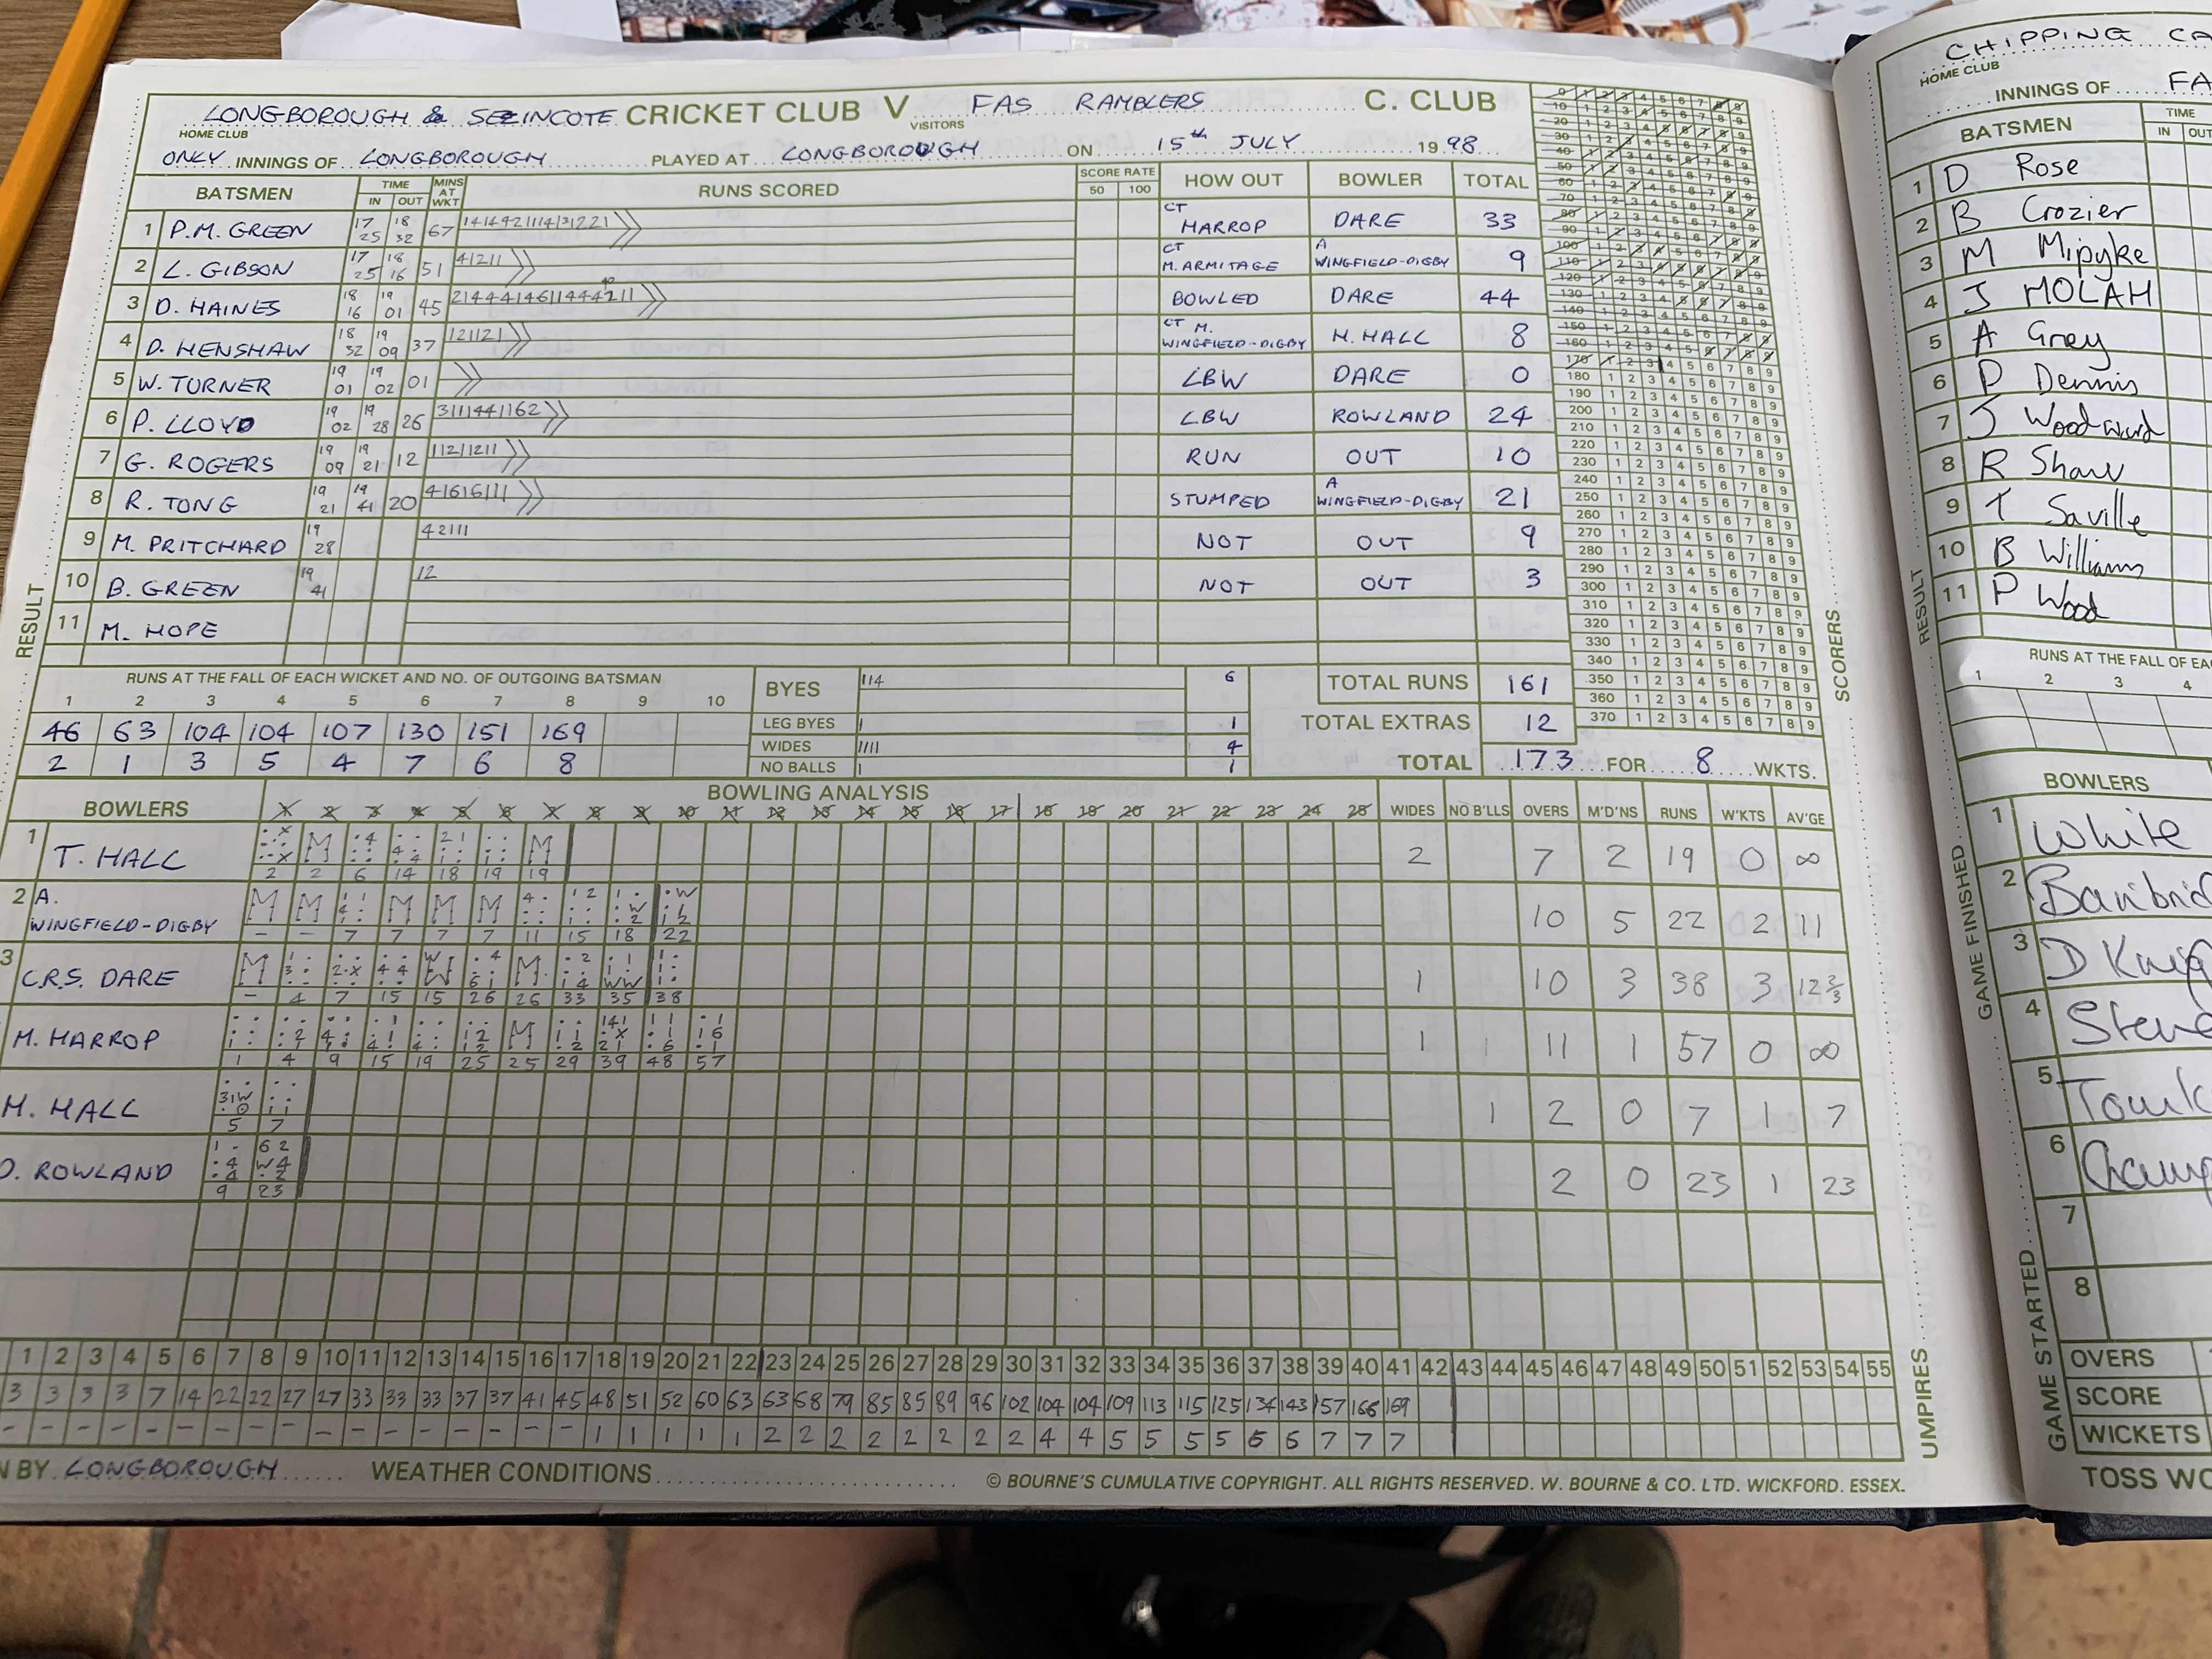 LONGBOROUGH & SEZINCOTE CRICKET CLUB V FAS RAMBLERS C. CLUB
HOME CLUB VISITORS
ONLY INNINGS OF LONGBOROUGH PLAYED AT LONGBOROUGH ON 15th JULY 1998
BATSMEN TIME IN OUT MINS AT WKT RUNS SCORED SCORE RATE 50 100 HOW OUT BOWLER TOTAL
1 P.M. GREEN 17 25 18 32 67 CT HARROP DARE 33
2 L. GIBSON 17 25 18 16 51 41211 CT M. ARMITAGE A WINGFIELD-DIGBY 9
3 D. HAINES 18 16 19 01 45 BOWLED DARE 44
4 D. HENSHAW 18 32 19 09 37 121121 CT M. WINGFIELD-DIGBY M. HALL 8
5 W. TURNER 19 01 19 02 01 LBW DARE 0
6 P. LLOYD 19 02 19 28 26 3111441162 LBW ROWLAND 24
7 G. ROGERS 19 09 19 21 12 11211211 RUN OUT 10
8 R. TONG 19 21 19 41 20 41616111 STUMPED A WINGFIELD-DIGBY 21
9 M. PRITCHARD 19 28 42111 NOT OUT 9
10 B. GREEN 19 41 12 NOT OUT 3
11 M. HOPE
RESULT
SCORERS
RUNS AT THE FALL OF EACH WICKET AND NO. OF OUTGOING BATSMAN
1 2 3 4 5 6 7 8 9 10
46 63 104 104 107 130 151 169
2 1 3 5 4 7 6 8
BYES 114 6 TOTAL RUNS 161
LEG BYES 1 1 TOTAL EXTRAS 12
WIDES 1111 4
NO BALLS 1 1 TOTAL 173 FOR 8 WKTS.
BOWLING ANALYSIS
BOWLERS 1 2 3 4 5 6 7 8 9 10 11 12 13 14 15 16 17 18 19 20 21 22 23 24 25 WIDES NO B'LLS OVERS M'D'NS RUNS W'KTS AV'GE
1 T. HALL 2 2 6 14 18 19 19 2 7 2 19 0 ∞
2 A. WINGFIELD-DIGBY – – 7 7 7 7 11 15 18 22 10 5 22 2 11
3 C.R.S. DARE – 4 7 15 15 26 26 33 35 38 1 10 3 38 3 12 2/3
M. HARROP 1 4 9 15 19 25 25 29 39 48 57 1 11 1 57 0 ∞
M. HALL 5 7 1 2 0 7 1 7
D. ROWLAND 9 23 2 0 23 1 23
1 2 3 4 5 6 7 8 9 10 11 12 13 14 15 16 17 18 19 20 21 22 23 24 25 26 27 28 29 30 31 32 33 34 35 36 37 38 39 40 41 42 43 44 45 46 47 48 49 50 51 52 53 54 55
3 3 3 3 7 14 22 22 27 27 33 33 33 37 37 41 45 48 51 52 60 63 63 68 79 85 85 89 96 102 104 104 109 113 115 125 134 143 157 166 169
– – – – – – – – – – – – – – – – – 1 1 1 1 1 2 2 2 2 2 2 2 2 4 4 5 5 5 5 6 6 7 7 7
N BY LONGBOROUGH WEATHER CONDITIONS
© BOURNE'S CUMULATIVE COPYRIGHT. ALL RIGHTS RESERVED. W. BOURNE & CO. LTD. WICKFORD. ESSEX.
UMPIRES
CHIPPING CA
HOME CLUB
INNINGS OF FA
BATSMEN TIME IN OUT
1 D Rose
2 B Crozier
3 M Mipyke
4 J MOLAH
5 A Grey
6 P Dennis
7 J Woodward
8 R Shaw
9 T Saville
10 B Williams
11 P Wood
RESULT
RUNS AT THE FALL OF EA
1 2 3 4
BOWLERS
1 White
2
3 D
4
5
6
7
8
GAME FINISHED
GAME STARTED
OVERS
SCORE
WICKETS
TOSS WO